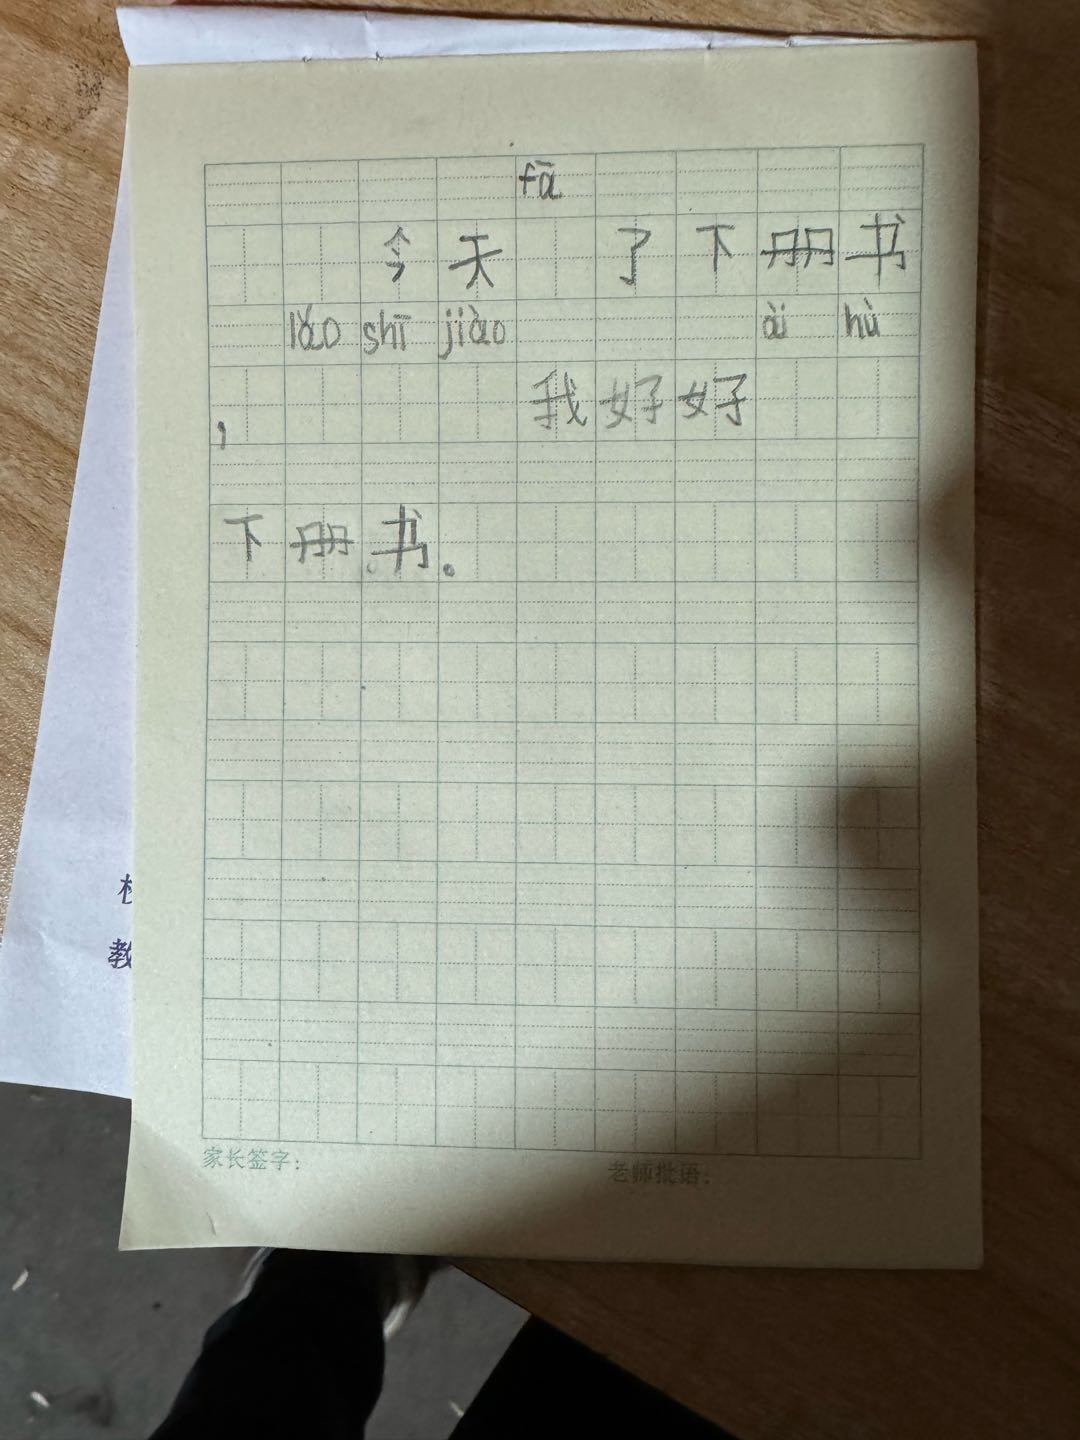 fā
今天 了下册书
lǎo shī jiào ài hù
， 我好好
下册书。
教
家长签字：
老师批语：